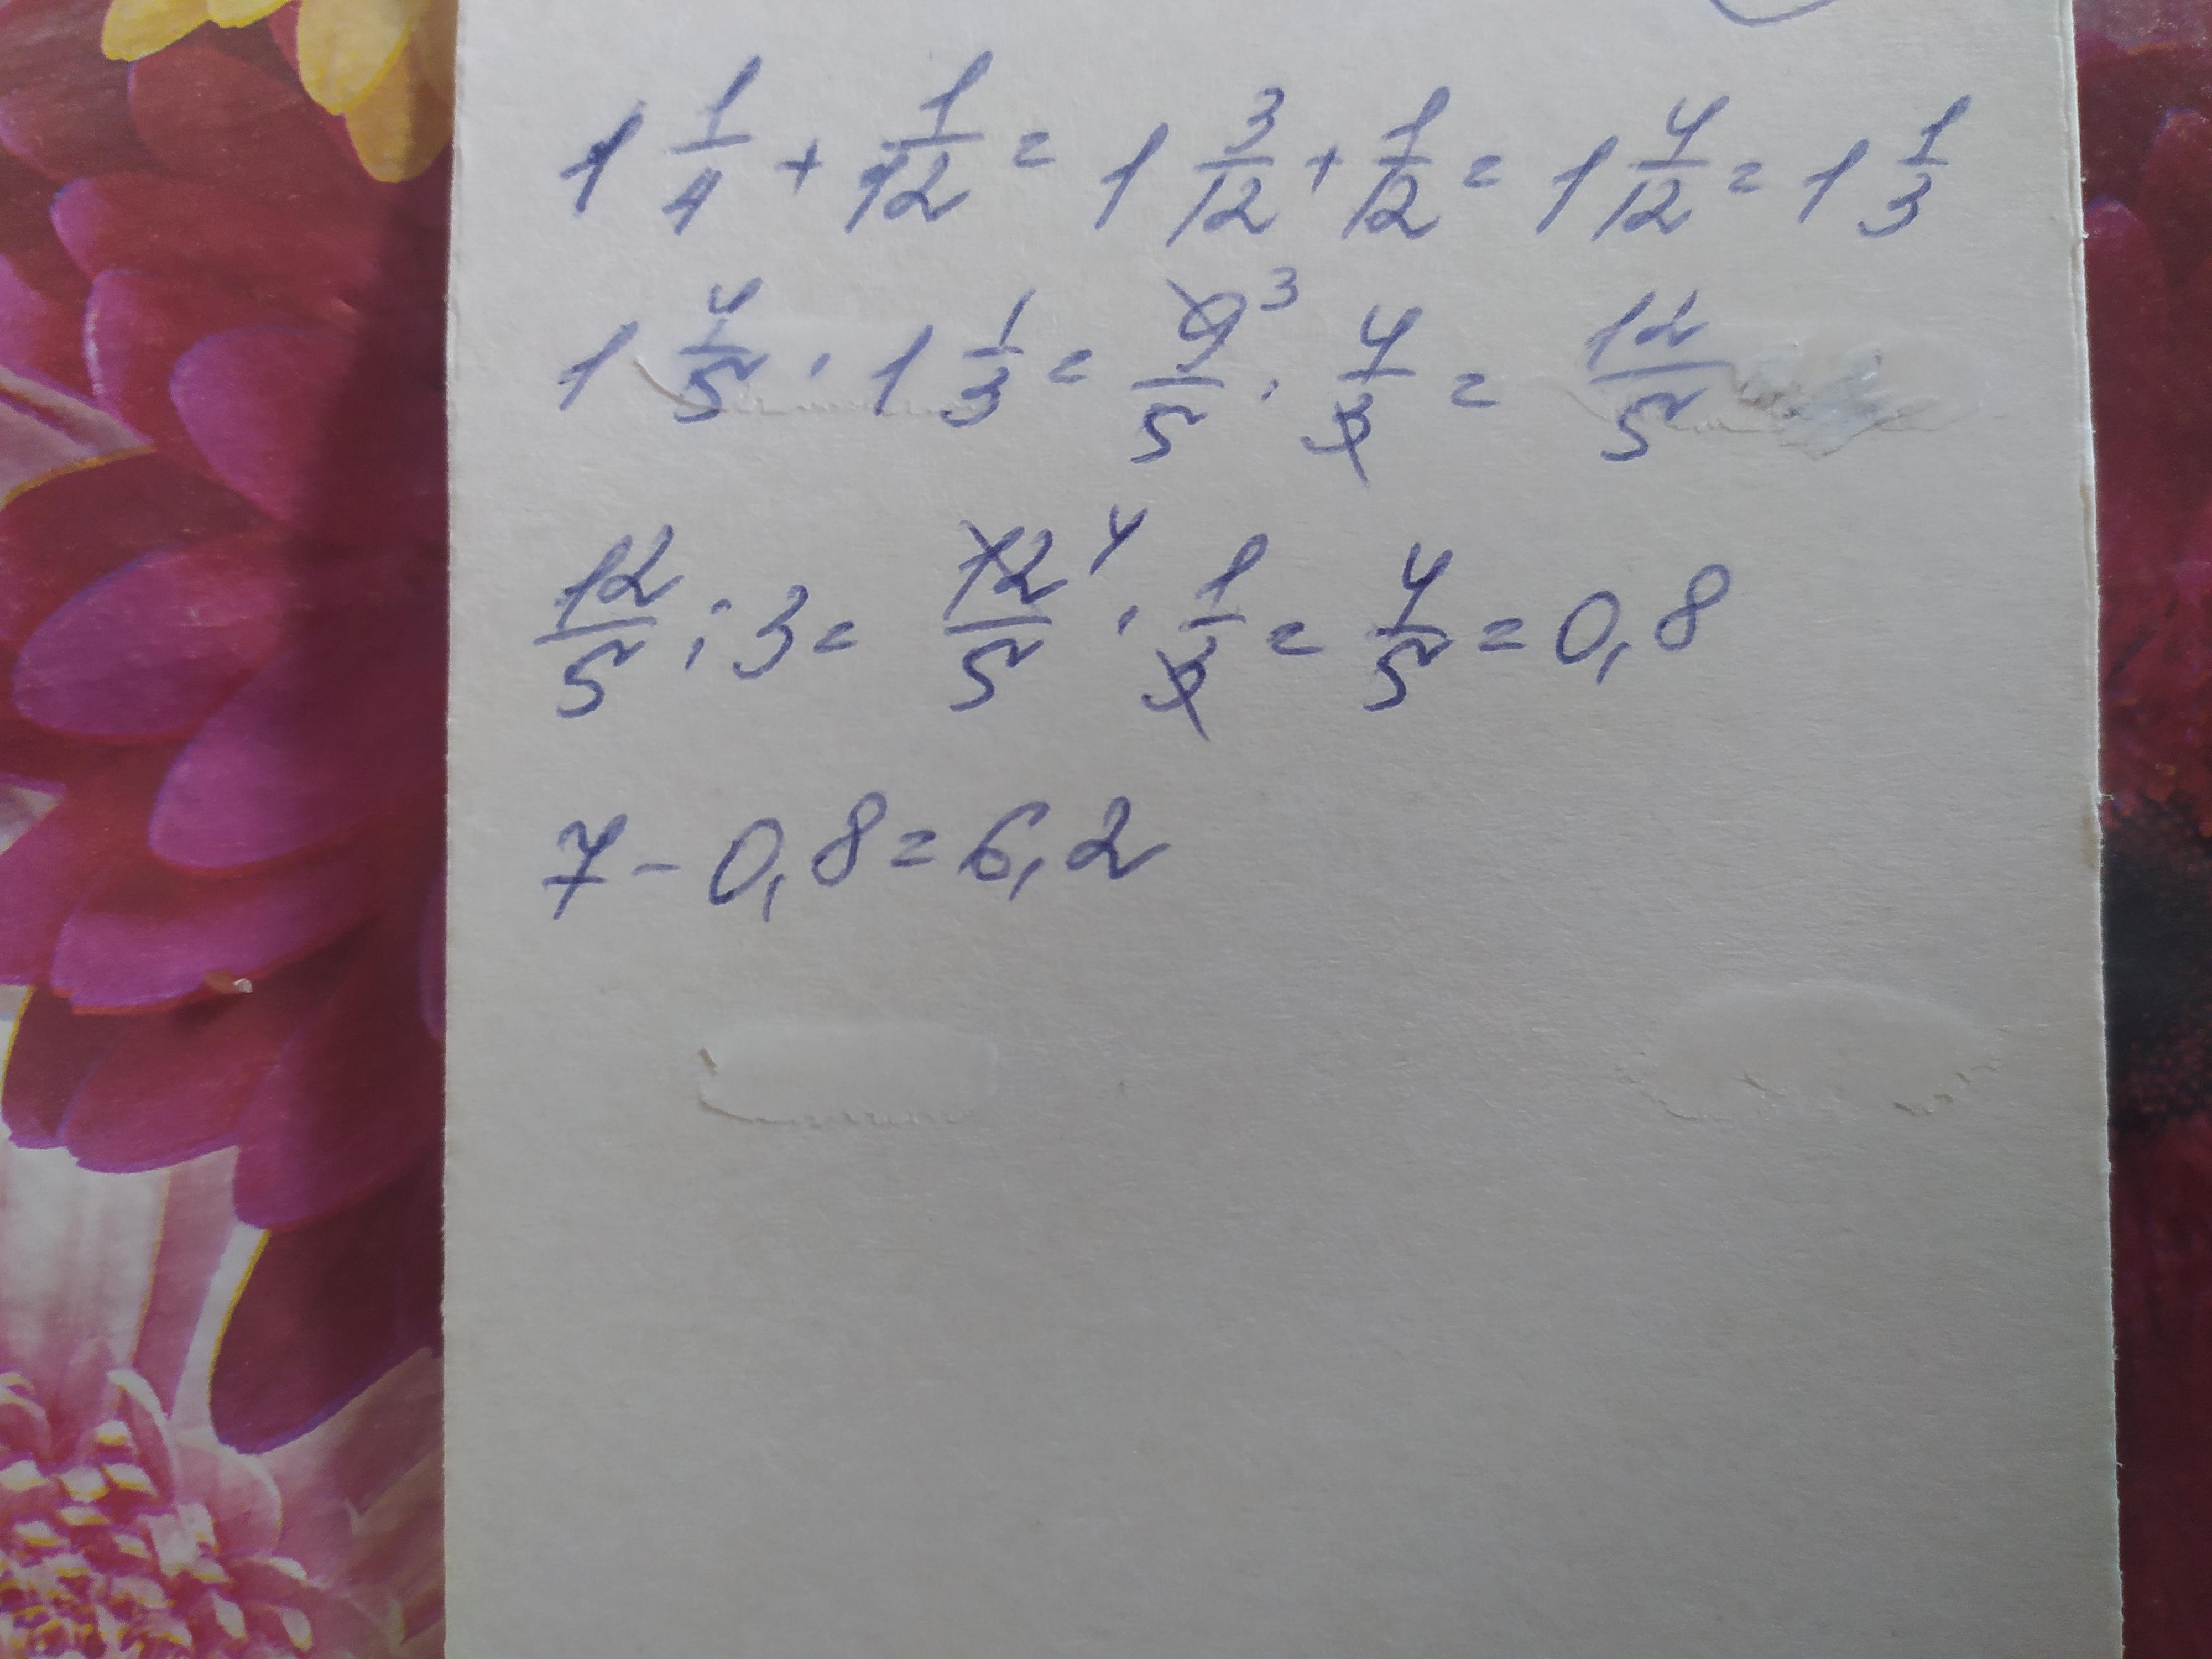 1 1/4 + 1/12 = 1 3/12 + 1/12 = 1 4/12 = 1 1/3
1 4/5 · 1 1/3 = 9/5 3 · 4/3 = 12/5
12/5 : 3 = 12/5 4 · 1/3 = 4/5 = 0,8
7 - 0,8 = 6,2